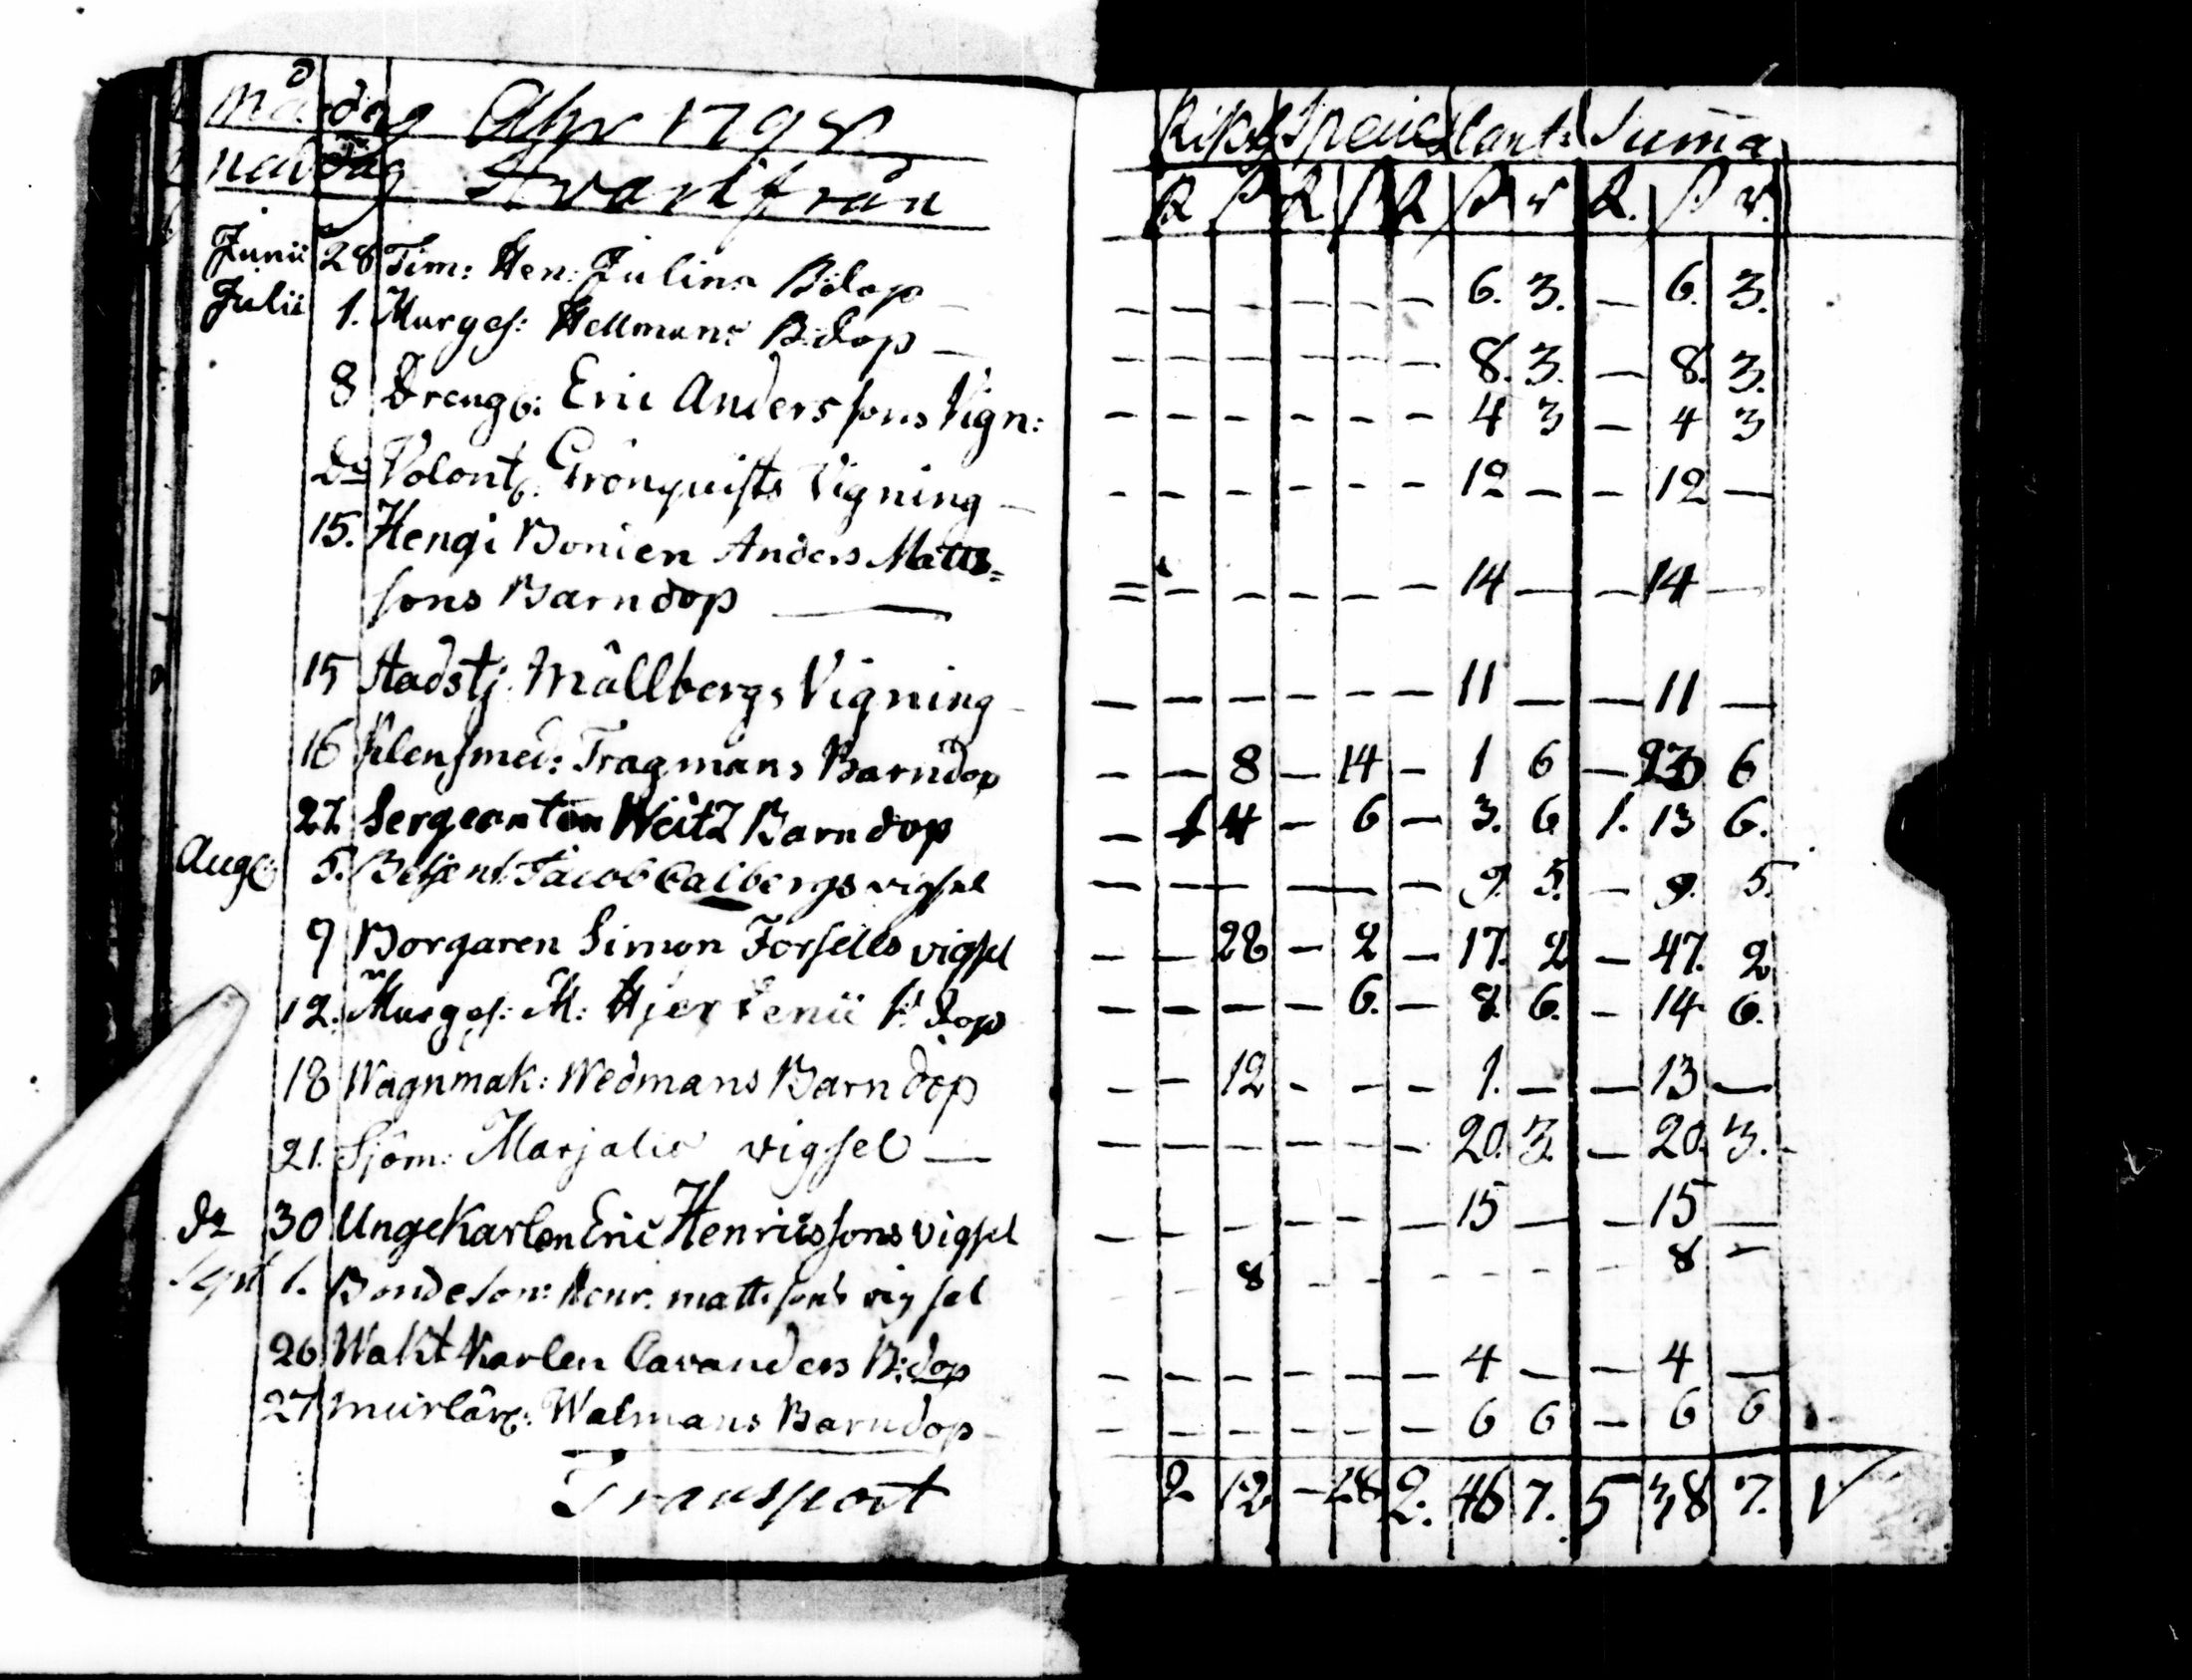 Må dag Ahr 1798 Riksg Specie Cant: Summa
nad dag Hvarifrån R ß R ß R ß r R. ß r.
Junii 28 Tim: Hen: Julins B:dop — — — — — 6. 3. — 6. 3.
Julii 1. Murges: Hellmans B:dop — — — — — — 8. 3. — 8. 3.
8 Drengs: Eric Anderssons Vign: — — — — — 4 3 — 4 3
Do Volont: Grönquists Vigning — — — — — — 12 — — 12 —
15. Hengi Bonden Anders Matts=
sons Barndop — = — — — — — 14 — — 14 —
15 Stadstj. Mållbergs Vigning — — — — — — 11 — — 11 —
16 Klensmed: Tragmans Barndop — — 8 — 14 — 1 6 — 23 6
27. Sergeanten Weitz Barndop — 1 4 — 6 — 3. 6 1. 13 6.
Aug: 5. Betjent Jacob Calbergs vigsel — — — — 9. 5. — 9. 5.
9 Borgaren Simon Forsells vigsel — — 28 — 2 — 17. 2 — 47. 2
12. Murges: M: Hjerdenii B:dop — — — — 6. — 8. 6. — 14 6.
18 Wagnmak: Wedmans Barndop — — 12 — — — 1. — — 13 —
21. Sjöm: Marjalis vigsel — — — — — — — 20. 3. — 20. 3.
do 30 Ungekarlen Eric Henricssons vigsel — — — — — — 15 — — 15 —
Sept 1. Bondeson: Henr. mattssons vigsel — — 8 — — — — — — 8 —
26 Wakt Karlen Cavanders B:dop — — — — — — 4 — — 4 —
27 Murlär: Walmans Barndop — — — — — — 6 6 — 6 6
Transport 2 12 — 28 2. 46 7. 5 38 7.